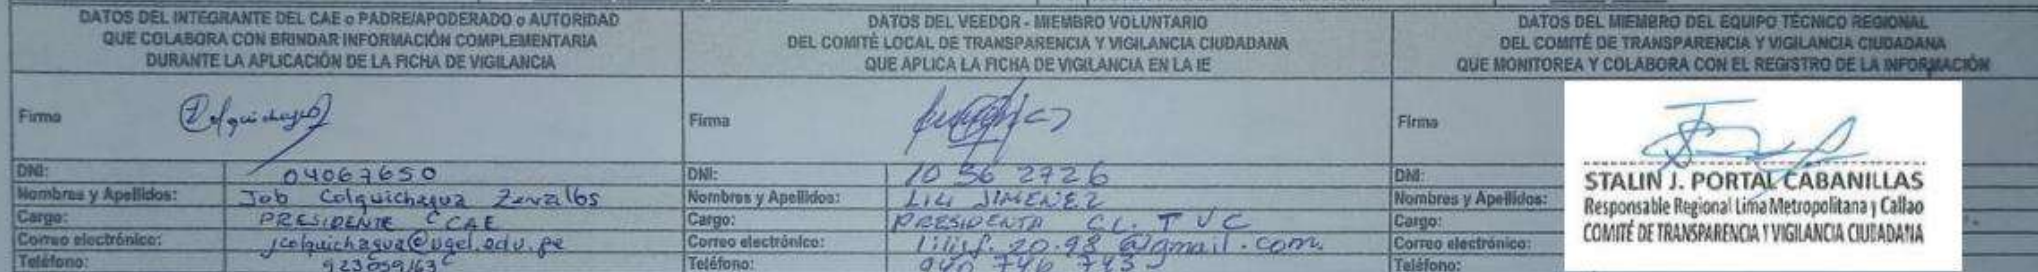 DATOS DEL INTEGRANTE DEL CAE o PADRE/APODERADO o AUTORIDAD
QUE COLABORA CON BRINDAR INFORMACIÓN COMPLEMENTARIA
DURANTE LA APLICACIÓN DE LA FICHA DE VIGILANCIA
Firma
DNI: 04067650
Nombres y Apellidos: Job Colquichagua
Cargo: PRESIDENTE CAE
Correo electrónico: jcolquichagua@ugel.edu.pe
Teléfono:
DATOS DEL VEEDOR - MIEMBRO VOLUNTARIO
DEL COMITÉ LOCAL DE TRANSPARENCIA Y VIGILANCIA CIUDADANA
QUE APLICA LA FICHA DE VIGILANCIA EN LA IE
Firma
DNI: 10 56 2726
Nombres y Apellidos: Lili JIMENEZ
Cargo: PRESIDENTA CL. T V C
Correo electrónico: lilisf.20.98@gmail.com
Teléfono: 940 746 743
DATOS DEL MIEMBRO DEL EQUIPO TÉCNICO REGIONAL
DEL COMITÉ DE TRANSPARENCIA Y VIGILANCIA CIUDADANA
QUE MONITOREA Y COLABORA CON EL REGISTRO DE LA INFORMACIÓN
Firma
STALIN J. PORTAL CABANILLAS
Responsable Regional Lima Metropolitana y Callao
COMITÉ DE TRANSPARENCIA Y VIGILANCIA CIUDADANA
DNI:
Nombres y Apellidos:
Cargo:
Correo electrónico:
Teléfono: